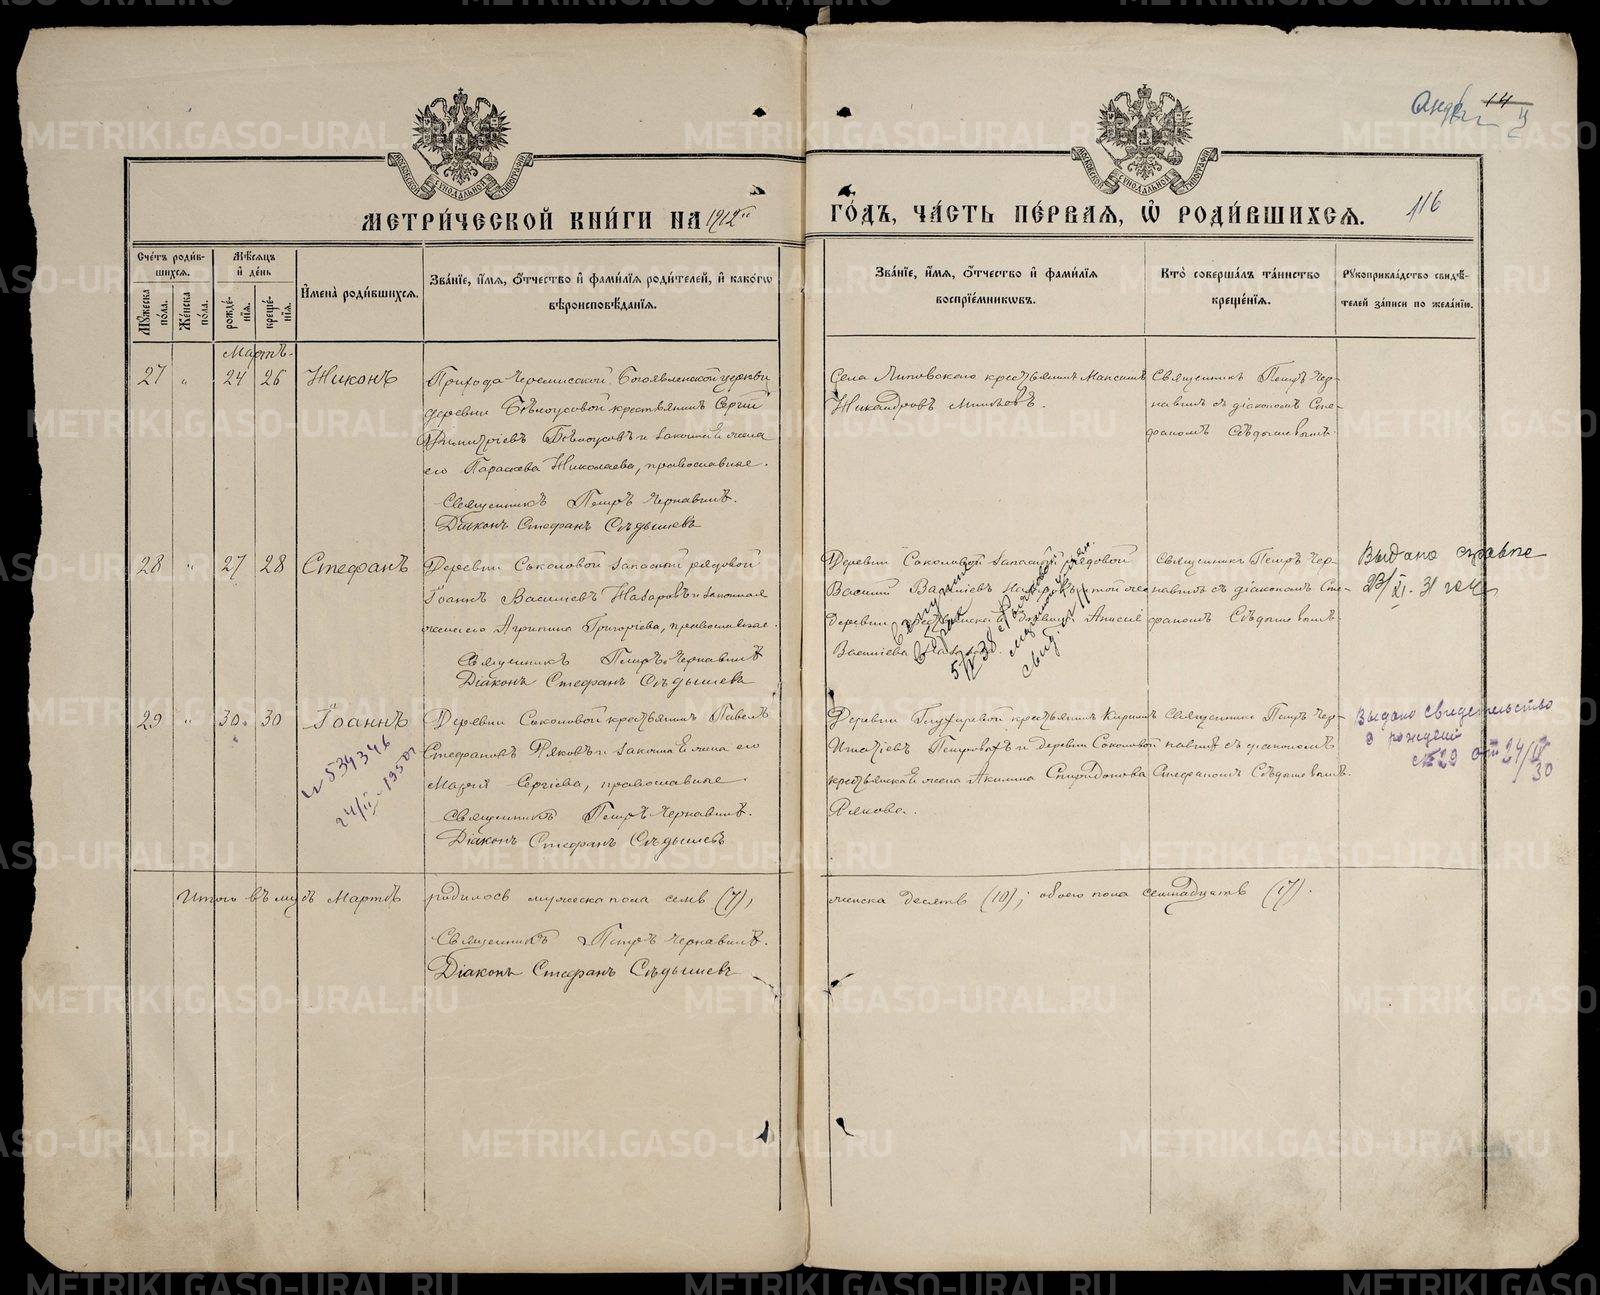 МЕТРИ́ЧЕСКОЙ КНИ́ГИ НА 1912й
ГО́ДЪ, ЧА́СТЬ ПЕ́РВАЯ, Ѿ РОДИ́ВШИХСЯ.
116
Сче́тъ роди́в-
шихся.
Му́жеска по́ла.
Же́нска по́ла.
Мѣ́сяцъ
и́ де́нь
рожде́-
нїя.
креще́-
нїя.
И҆мена̀ роди́вшихся.
Зва́нїе, и҆́мя, ѻ҆́тчество и҆ фами́лїя роди́телей, и҆ како́гѡ
вѣроисповѣ́данїя.
Зва́нїе, и҆́мя, ѻ҆́тчество и҆ фами́лїя
воспрїе́мникѡвъ.
Кто̀ соверша́лъ та́инство
креще́нїя.
Рꙋкоприкла́дство свидѣ́-
телей за́писи по жела́нїю.
Мартъ
27 " 24 26 Никонъ
Прихода Черемисской Богоявленской церкви
деревни Бѣлоусовой крестьянинъ Сергій
Димитріевъ Бѣлоусовъ и законная жена
его Параскева Николаева, православные.
Священникъ Петръ Чернавинъ.
Діаконъ Стефанъ Сѣдышевъ
Села Липовскаго крестьянинъ Максимъ
Никандровъ
Священникъ Петръ Чер-
навинъ съ діакономъ Сте-
фаномъ Сѣдышевымъ.
28 " 27 28 Стефанъ
Деревни Соколовой запасный рядовой
Іоаннъ Васильевъ Назаровъ и законная
жена его Агрипина Григорьева, православные.
Священникъ Петръ Чернавинъ
Діаконъ Стефанъ Сѣдышевъ
Деревни Соколовой запасный рядовой
Василий Васильевъ
Деревни дѣвица Анисія
Васильева
Священникъ Петръ Чер-
навинъ съ діакономъ Сте-
фаномъ Сѣдышевымъ.
Выдано
23/XI. 31
29 " 30 30 Іоаннъ
Деревни Соколовой крестьянинъ Павелъ
Стефановъ Ряковъ и законная жена его
Марія Сергіева, православные
Священникъ Петръ Чернавинъ.
Діаконъ Стефанъ Сѣдышевъ
№ 534346
24/II - 1950
Деревни Глухаревой крестьянинъ Кириллъ
Игнатіевъ Петровыхъ и деревни Соколовой
крестьянская жена Акилина Спиридонова
Рякова.
Священникъ Петръ Чер-
навинъ съ діакономъ
Стефаномъ Сѣдышевымъ.
Выдано свидетельство
о рождении
№ 29 от 24/IV
30
Итого въ м-цѣ Мартѣ родилось мужеска пола семь (7),
женска десять (10); обоего пола семнадцать (17).
Священникъ Петръ Чернавинъ.
Діаконъ Стефанъ Сѣдышевъ
METRIKI.GASO-URAL.RU